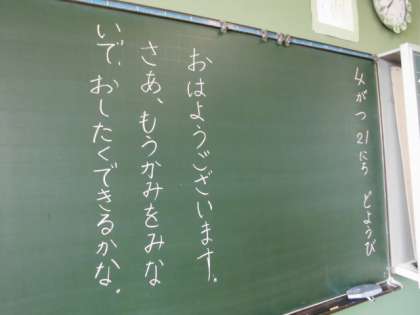 4がつ 21にち どようび
おはようございます。
さあ、もうかみをみな
いで、おしたくできるかな。